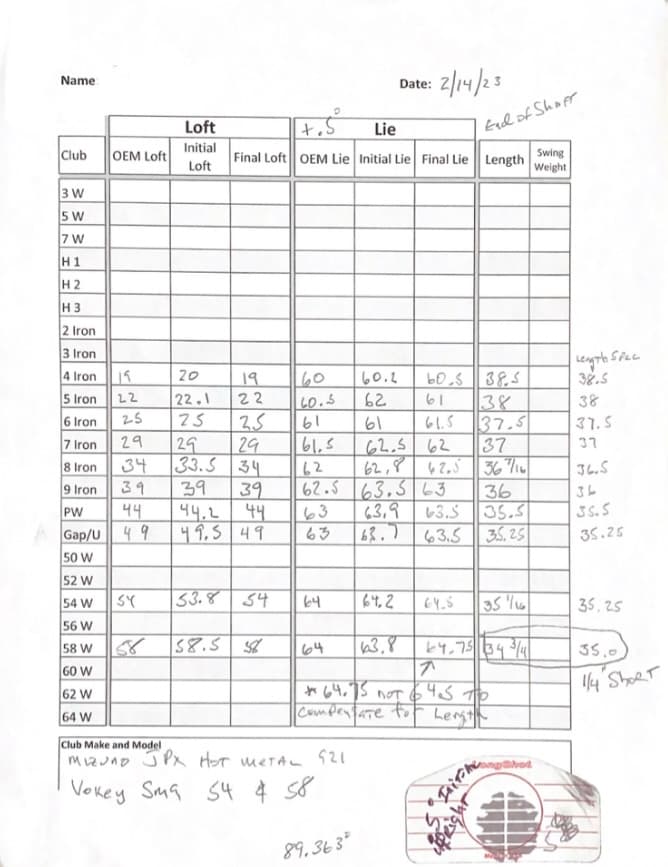 Name
Date: 2/14/23
End of Shaft
Loft +.5° Lie
Club OEM Loft Initial Loft Final Loft OEM Lie Initial Lie Final Lie Length Swing Weight
3 W
5 W
7 W
H 1
H 2
H 3
2 Iron
3 Iron
Length Spec
4 Iron 19 20 19 60 60.2 60.5 38.5 38.5
5 Iron 22 22.1 22 60.5 62 61 38 38
6 Iron 25 25 25 61 61 61.5 37.5 37.5
7 Iron 29 29 29 61.5 62.5 62 37 37
8 Iron 34 33.5 34 62 62.8 62.5 36 7/16 36.5
9 Iron 39 39 39 62.5 63.5 63 36 36
PW 44 44.2 44 63 63.9 63.5 35.5 35.5
Gap/U 49 49.5 49 63 63.7 63.5 35.25 35.25
50 W
52 W
54 W 54 53.8 54 64 64.2 64.5 35 1/16 35.25
56 W
58 W 58 58.5 58 64 63.8 64.75 34 3/4 35.0
60 W ↑
1/4" Short
62 W * 64.75 not 64.5 to
64 W Compensate for Length
Club Make and Model
Mizuno JPX Hot Metal 921
Vokey SM9 54 & 58
LongShot
.5° Initial
upright
89.363°